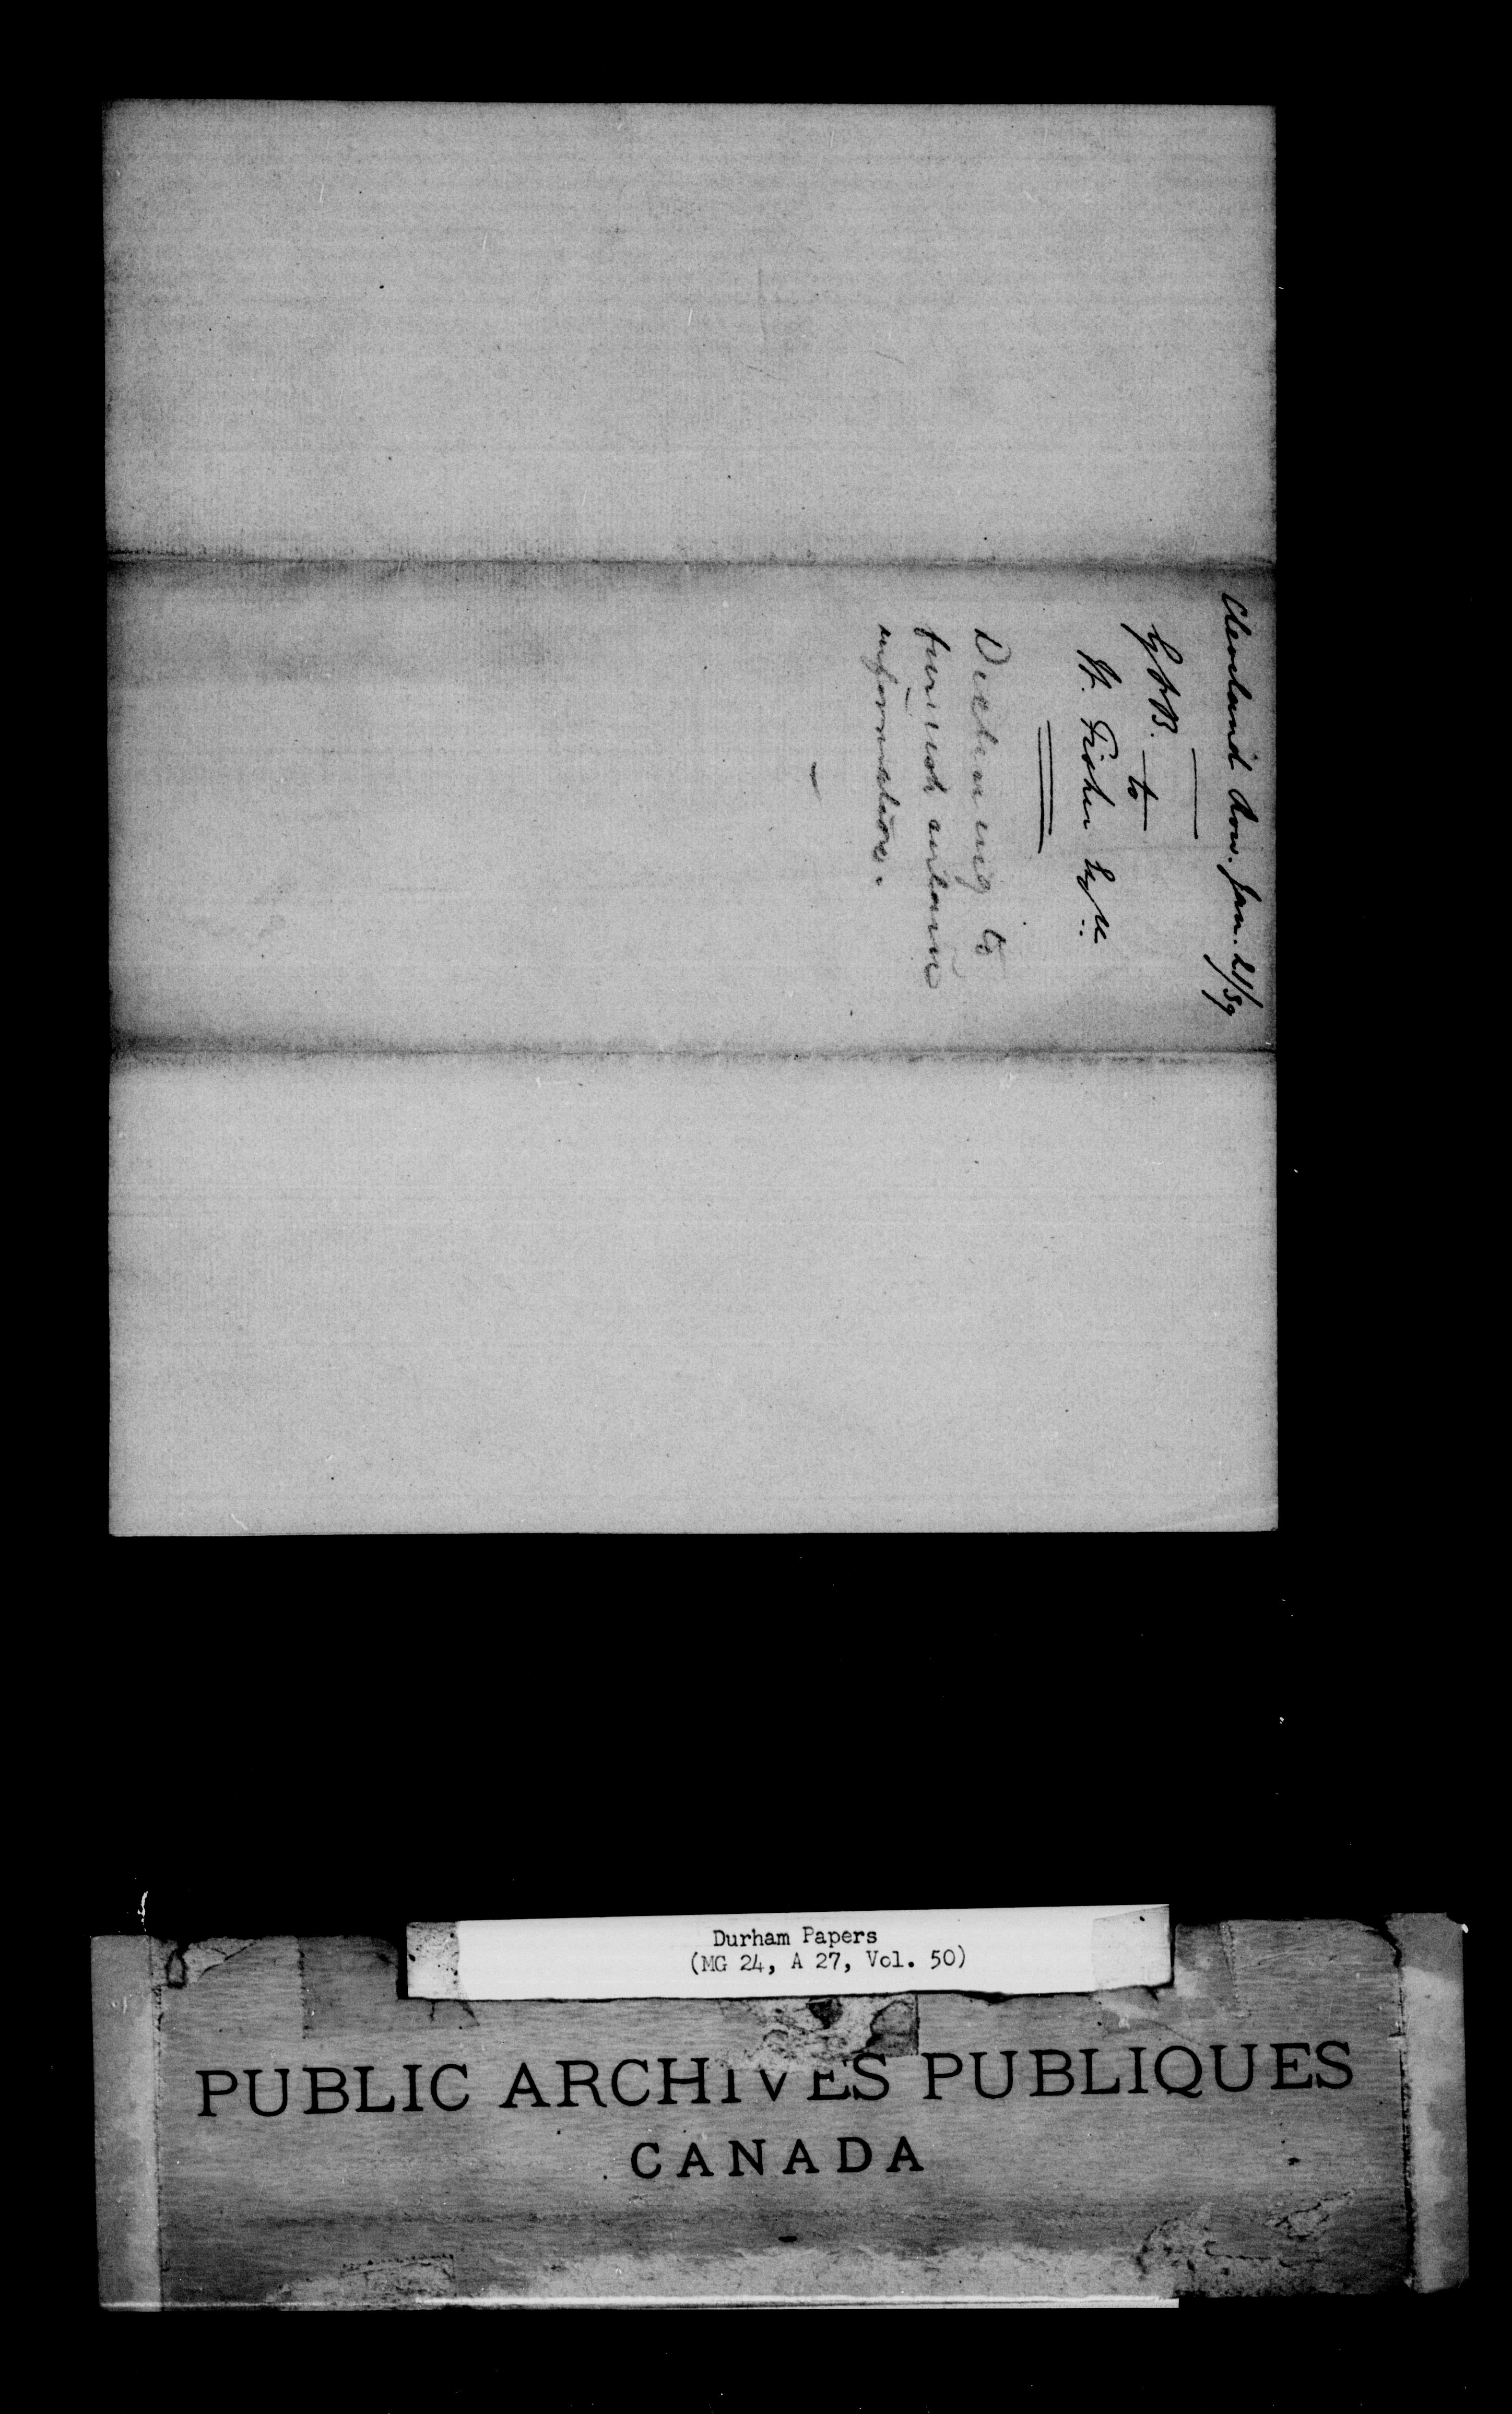 Cleveland Row. Jan. 21/39
to
H. Fisher Esqre
Declining to
furnish certain
information.
Durham Papers
(MG 24, A 27, Vol. 50)
PUBLIC ARCHIVES PUBLIQUES
CANADA